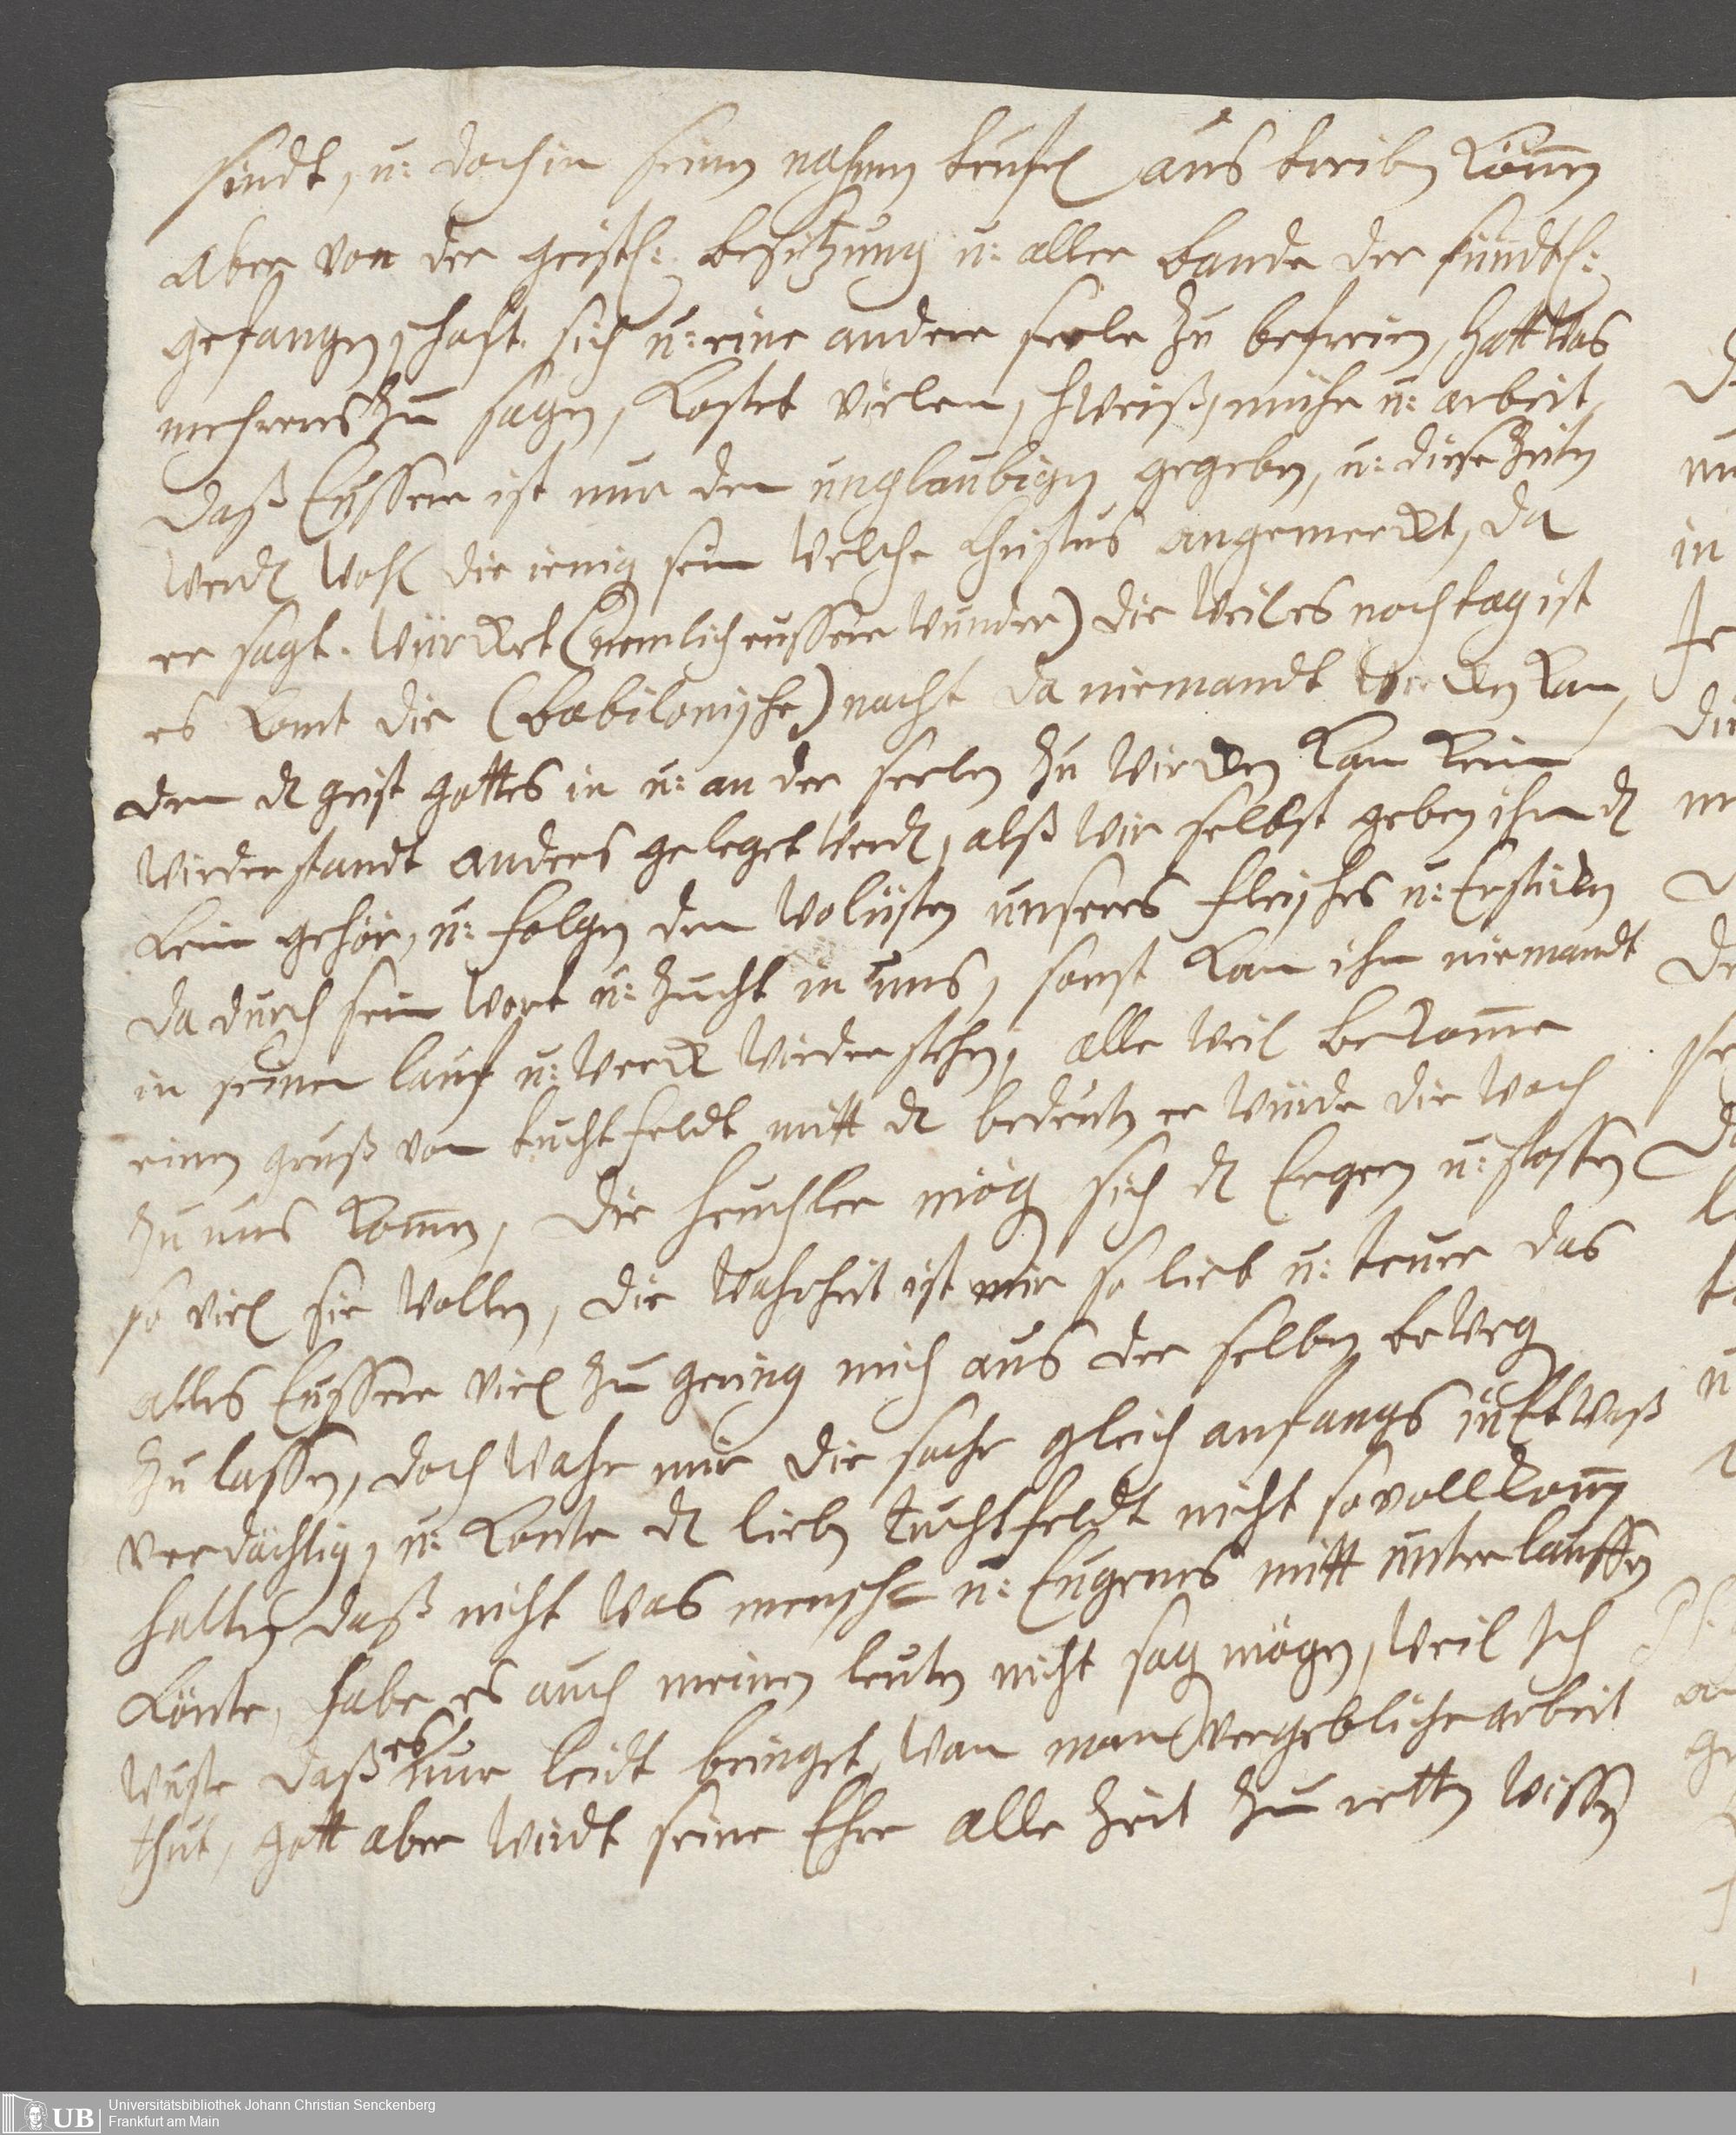 sindt, u: doch in seinen nahmen teufel aus treiben könen
aber von der geistl: besitzung u: aller bande der sündtl:
gefangenschaft sich u: eine andere seele zu befreien, hatt was
mehreres zu sagen, kostet vielen schweiß, mühe u: arbeit
daß eussere ist nur den unglaubigen gegeben, u: diese zeiten
werdē wohl die ienig sein welche Christus angemerckt, da
er sagt. würcket (nemlich eussere wunder) die weil es noch tag ist
es komt die (babilonische) nacht da niemandt wircken kan,
den d geist gottes in u: an der seelen zu wircken kan kein
wiederstandt anders geleget werdē, alß wir selbst geben ihm d
kein gehör, u: folgen den wolüsten unseres fleisches u: ersticken
da durch sein wort u: zucht in uns, sonst kan ihm niemandt
in seinen lauf u: werck wiederstehen, alle weil bekome
einen gruß von tuchtfeldt mitt d bedeuten er würde die woch
zu uns komen, die heuchler mög sich d ergern u: stossen
so viel sie wollen, die wahrheit ist mir so lieb u: teuer das
alles eussere viel zu gering mich aus der selben beweg
zu lassen, doch wahr mir die sache gleich anfangs in etwaß
verdächtig, u: konte d lieben tuchtfeldt nicht so vollkomen
halten daß nicht was mensch= u: eugenes mitt unterlauffen
könte, habe es auch meinen leuten nicht sag mögen, weil Ich
wuste daß es nur leidt bringet, wan man vergebliche arbeit
thut, gott aber wirdt seine Ehre alle zeit zu retten wissen
Universitätsbibliothek Johann Christian Senckenberg
Frankfurt am Main
UB